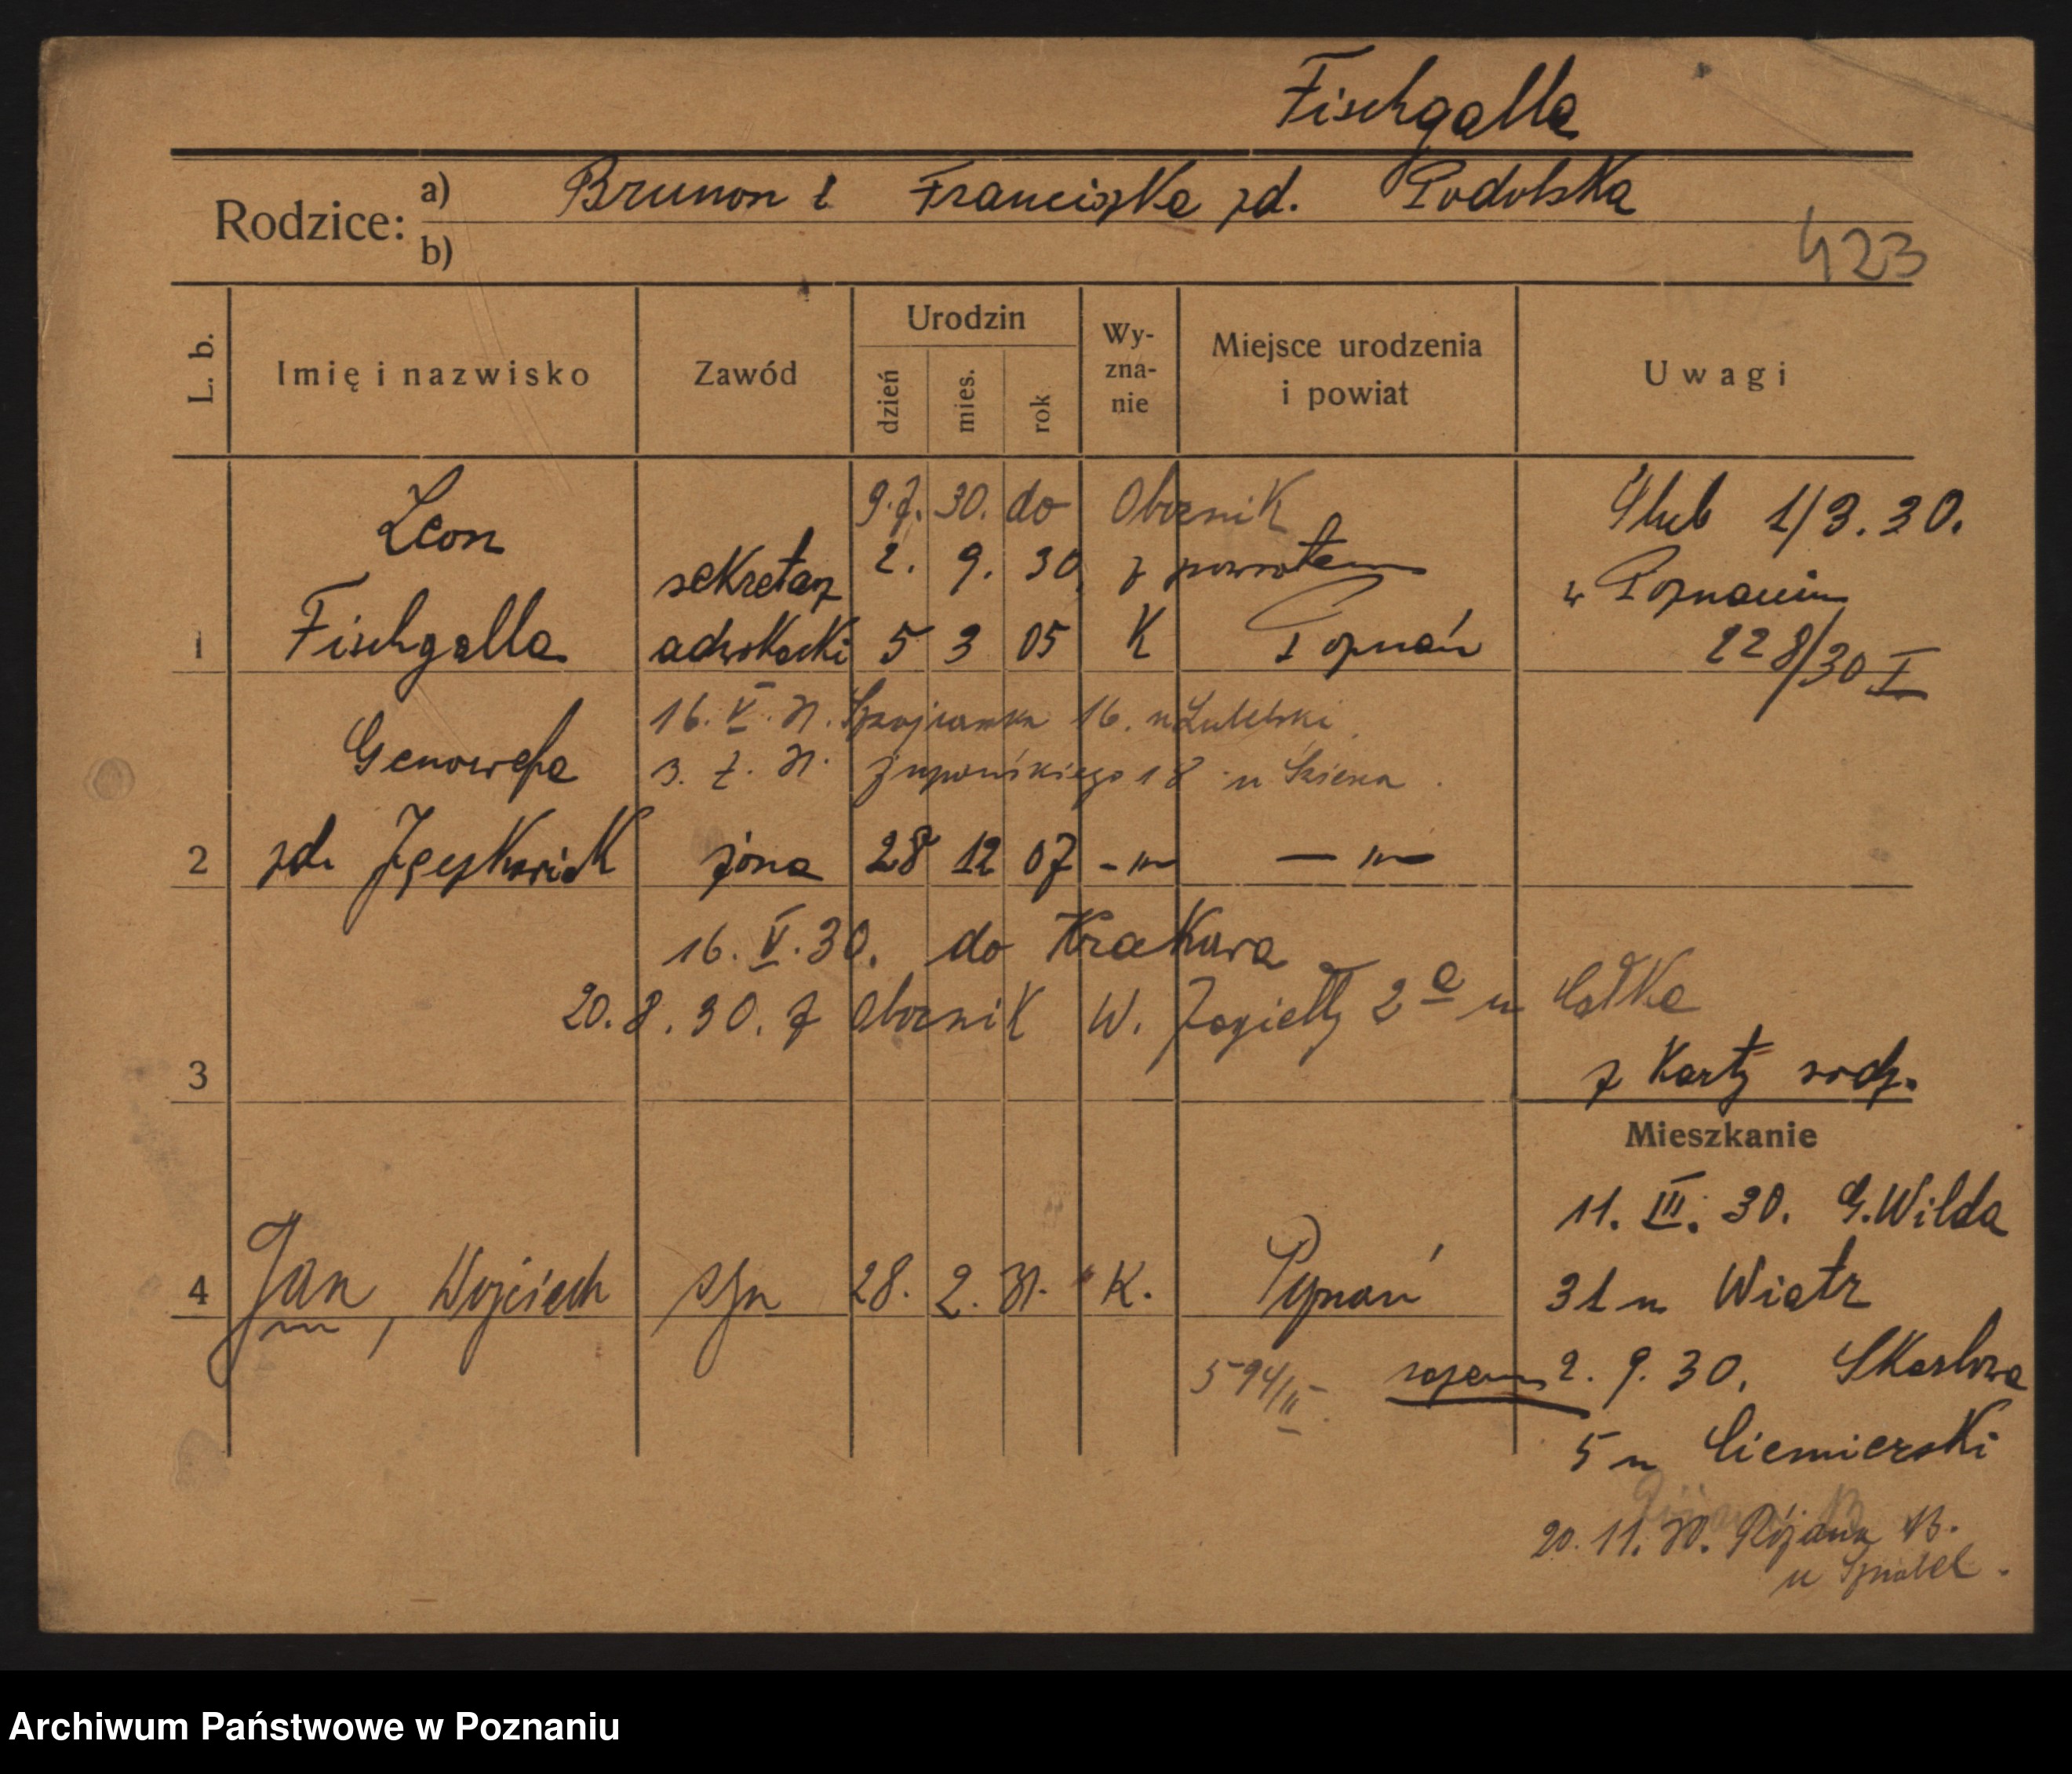 Fischgalla
Rodzice: a) Brunon i Franciszka zd. Podolska
b)
423
L. b. Imię i nazwisko Zawód Urodzin dzień mies. rok Wy-zna-nie Miejsce urodzenia i powiat Uwagi
9.7. 30. do Obornik
2. 9. 30. z powrotem
Ślub 1/3. 30.
w Poznaniu
228/30 I
1 Leon Fischgalla sekretarz adwokacki 5 3 05 K Poznań
16. V. 31. 16. u
3. 7. 31. Żupańskiego 18 u
2 Genowefa zd. żona 28 12 07 - " - — " —
16. V. 30. do Krakowa
20. 8. 30. z Obornik W. Jagiełły 2a u Całka
z Karty rodz.
3
Mieszkanie
11. III. 30. G. Wilda
31 u Wiatr
4 Jan, Wojciech syn 28. 2. 31. K. Poznań
594/II
razem 2. 9. 30. Skarbowa
5 u Ciemierski
20. 11. 30. Różana 13.
u
Archiwum Państwowe w Poznaniu